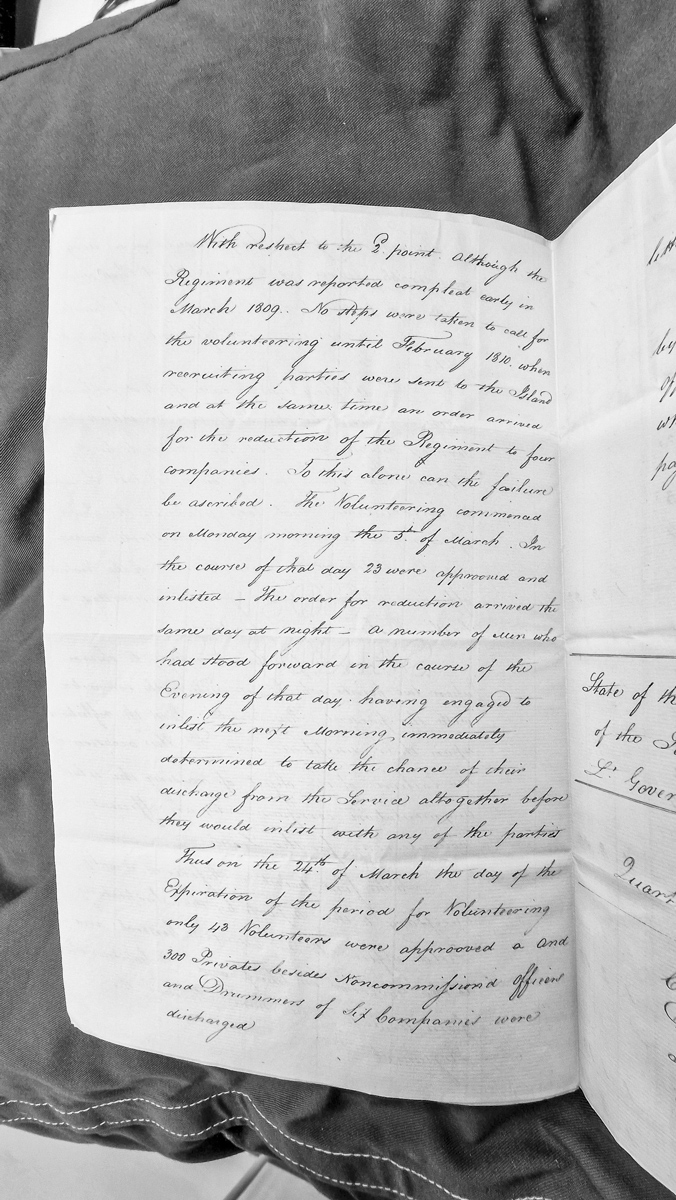 With respect to the 2d. point. although the
Regiment was reported compleat early in
March 1809.. No steps were taken to call for
the volunteering until February 1810. when
recruiting parties were sent to the Island
and at the same time an order arrived
for the reduction of the Regiment to four
companies. To this alone can the failure
be ascribed. The Volunteering commenced
on Monday morning the 5th. of March. In
the course of that day 23 were approoved and
inlisted – The order for reduction arrived the
same day at night – a number of Men who
had stood forward in the course of the
Evening of that day. having engaged to
inlist the next Morning immediately
determined to take the chance of their
discharge from the Service altogether before
they would inlist with any of the parties
Thus on the 24th. of March the day of the
Expiration of the period for Volunteering
only 43 Volunteers were approoved a and
300 Privates besides Noncommission'd Officers
and Drummers of Six Companies were
discharged
by
State of th
of the
Lt. Gover
Quart